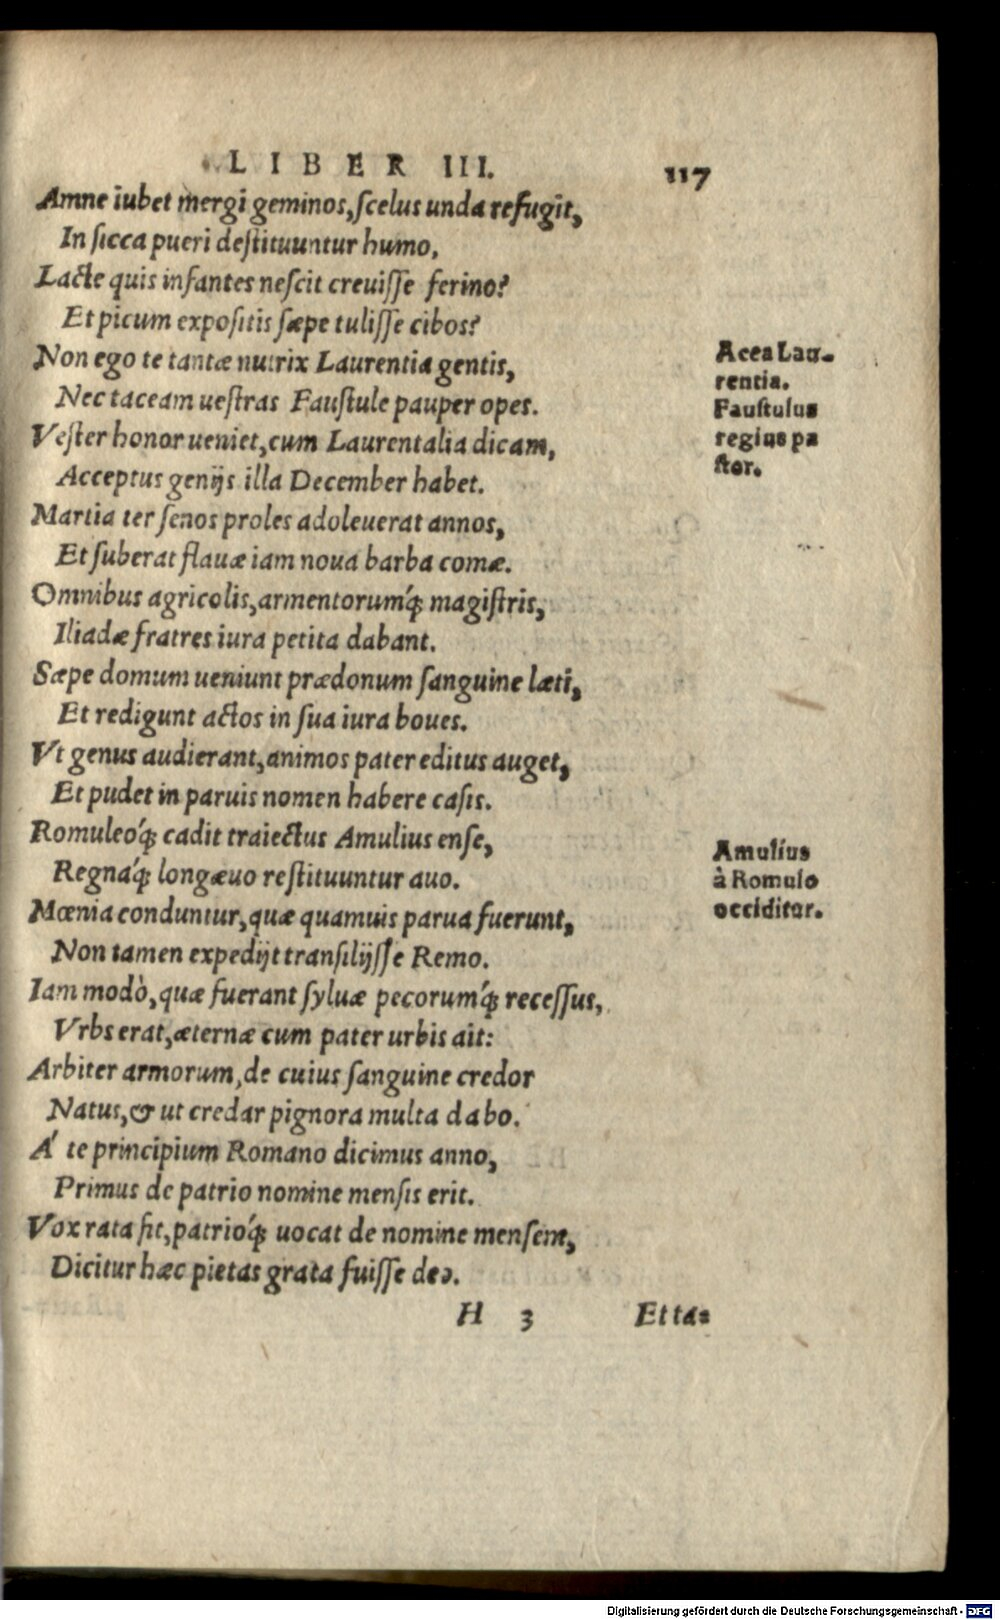 LIBER III. 117
Amne iubet mergi geminos, scelus unda refugit,
In sicca pueri destituuntur humo,
Lacte quis infantes nescit creuisse ferino?
Et picum expositis sæpe tulisse cibos?
Non ego te tantæ nutrix Laurentia gentis,
Nec taceam uestras Faustule pauper opes.
Vester honor ueniet, cum Laurentalia dicam,
Acceptus genijs illa December habet.
Martia ter senos proles adoleuerat annos,
Et suberat flauæ iam noua barba comæ.
Omnibus agricolis, armentorumq́; magistris,
Iliadæ fratres iura petita dabant.
Sæpe domum ueniunt prædonum sanguine læti,
Et redigunt actos in sua iura boues.
Vt genus audierant, animos pater editus auget,
Et pudet in paruis nomen habere casis.
Romuleoq́; cadit traiectus Amulius ense,
Regnaq́; longæuo restituuntur auo.
Mœnia conduntur, quæ quamuis parua fuerunt,
Non tamen expedijt transilijsse Remo.
Iam modò, quæ fuerant syluæ pecorumq́; recessus,
Vrbs erat, æternæ cum pater urbis ait:
Arbiter armorum, de cuius sanguine credor
Natus, & ut credar pignora multa dabo.
Á te principium Romano dicimus anno,
Primus de patrio nomine mensis erit.
Vox rata fit, patrioq́; uocat de nomine mensem,
Dicitur hæc pietas grata fuisse deo.
H 3 Et ta=
Acea Lau-
rentia.
Faustulus
regius pa
stor.
Amulius
à Romulo
occiditur.
Digitalisierung gefördert durch die Deutsche Forschungsgemeinschaft - DFG